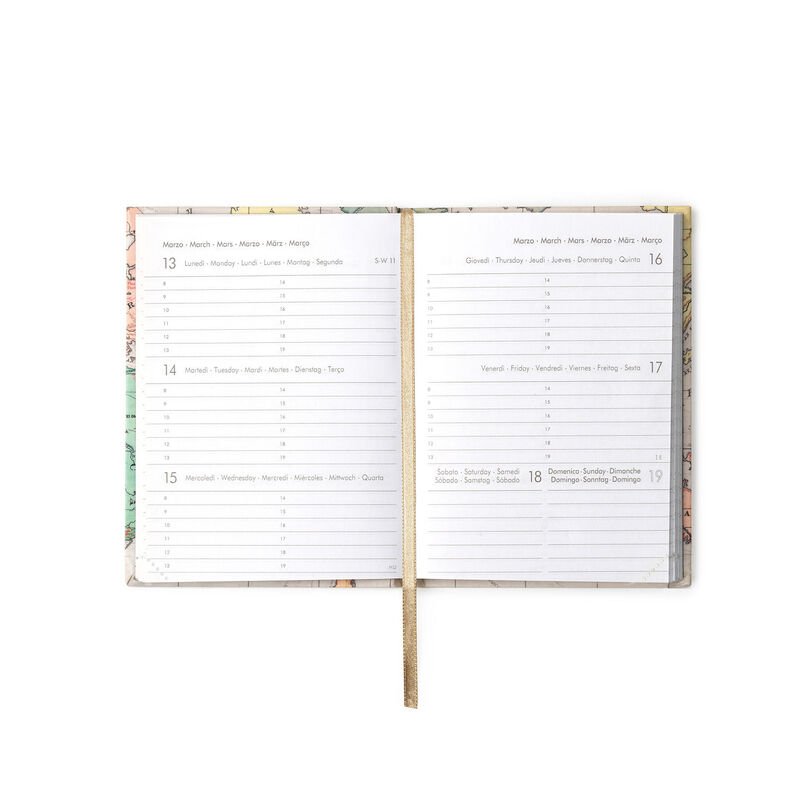 Marzo · March · Mars · Marzo · März · Março
13 Lunedì · Monday · Lundi · Lunes · Montag · Segunda S-W 11
8 14
9 15
10 16
11 17
12 18
13 19
14 Martedì · Tuesday · Mardi · Martes · Dienstag · Terça
8 14
9 15
10 16
11 17
12 18
13 19
15 Mercoledì · Wednesday · Mercredi · Miércoles · Mittwoch · Quarta
8 14
9 15
10 16
11 17
12 18
13 19
Marzo · March · Mars · Marzo · März · Março
Giovedì · Thursday · Jeudi · Jueves · Donnerstag · Quinta 16
8 14
9 15
10 16
11 17
12 18
13 19
Venerdì · Friday · Vendredi · Viernes · Freitag · Sexta 17
8 14
9 15
10 16
11 17
12 18
13 19
Sabato · Saturday · Samedi
Sábado · Samstag · Sábado 18
Domenica · Sunday · Dimanche
Domingo · Sonntag · Domingo 19